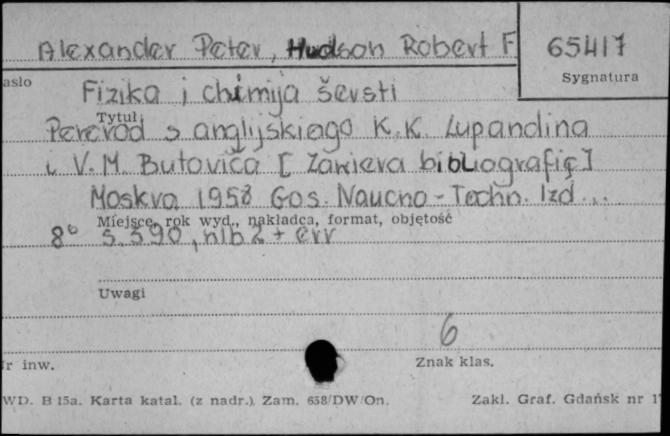 Alexander Peter, Hudson Robert F.
65417
Sygnatura
asło
Fizika i chimija šersti
Tytuł
Perevod s anglijskiego K.K. Lupandina
i V.M. Butoviča [Zawiera bibliografię]
Moskva 1958 Gos. Naucno-Techn. Izd...
Miejsce, rok wyd., nakładca, format, objętość
8° s. 390, nlb 2 + err
Uwagi
6
r inw.
Znak klas.
WD. B 15a. Karta katal. (z nadr.). Zam. 658/DW/On.
Zakl. Graf. Gdańsk nr 1